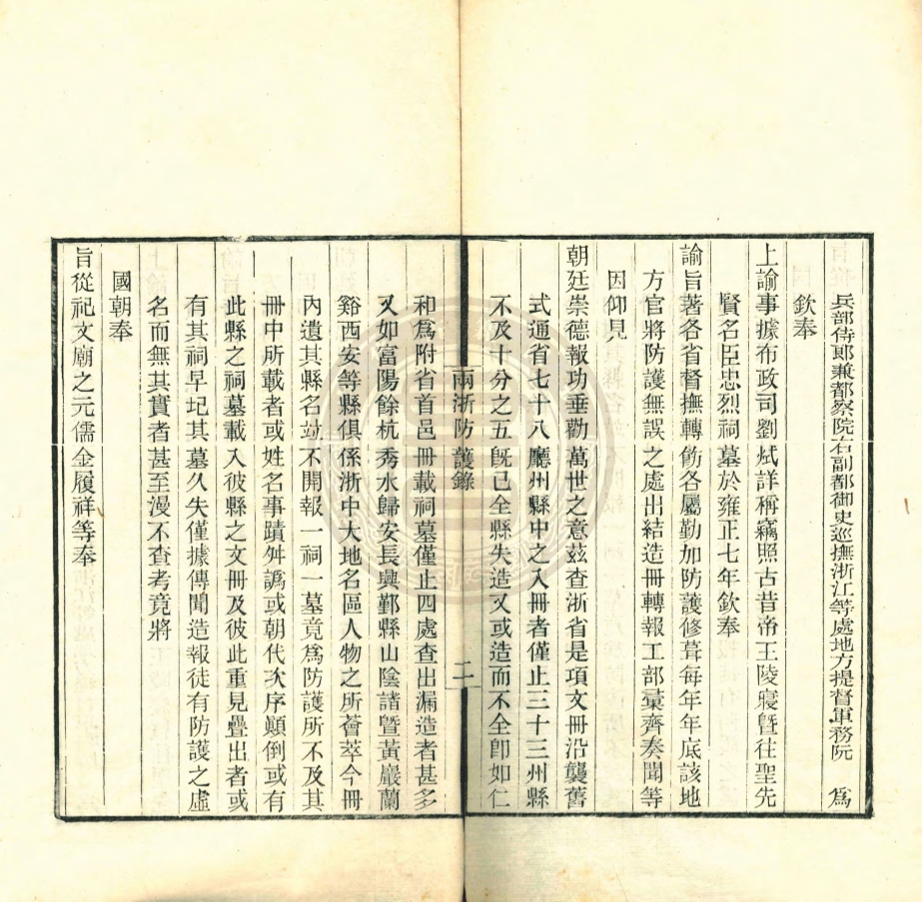 兵部侍郎兼都察院右副都御史巡撫浙江等處地方提督軍務阮　爲
欽奉
上諭事據布政司劉烒詳稱竊照古昔帝王陵寢曁往聖先
賢名臣忠烈祠墓於雍正七年欽奉
諭旨著各省督撫轉飭各屬勤加防護修葺每年年底該地
方官將防護無誤之處出結造冊轉報工部彙齊奏聞等
因仰見
朝廷崇德報功垂勸萬世之意茲查浙省是項文冊沿襲舊
式通省七十八廳州縣中之入冊者僅止三十三州縣
不及十分之五旣已全縣失造又或造而不全卽如仁
兩浙防護錄
二
和爲附省首邑冊載祠墓僅止四處查出漏造者甚多
又如富陽餘杭秀水歸安長興鄞縣山陰諸曁黃巖蘭
谿西安等縣俱係浙中大地名區人物之所薈萃今冊
內遺其縣名竝不開報一祠一墓竟爲防護所不及其
冊中所載者或姓名事蹟舛譌或朝代次序顚倒或有
此縣之祠墓載入彼縣之文冊及彼此重見疊出者或
有其祠早圮其墓久失僅據傳聞造報徒有防護之虛
名而無其實者甚至漫不查考竟將
國朝奉
旨從祀文廟之元儒金履祥等奉